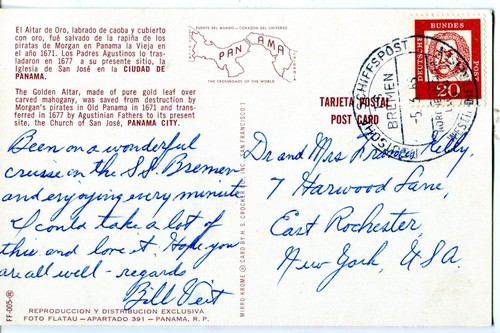 El Altar de Oro, labrado de caoba y cubierto
con oro, fué salvado de la rapiña de los
piratas de Morgan en Panama la Vieja en
el año 1671. Los Padres Agustinos lo tras-
ladaron en 1677 a su presente sitio, la
Iglesia de San José en la CIUDAD DE
PANAMA.
The Golden Altar, made of pure gold leaf over
carved mahogany, was saved from destruction by
Morgan's pirates in Old Panama in 1671 and trans-
ferred in 1677 by Agustinian Fathers to its present
site, the Church of San José, PANAMA CITY.
Been on a wonderful
cruise on the S.S. Bremen
and enjoying every minute
I could take a lot of
this and love it. Hope you
are all well - regards
Bill Veit
REPRODUCCION Y DISTRIBUCION EXCLUSIVA
FOTO FLATAU - APARTADO 391 - PANAMA, R. P.
FF-005-R
PUENTE DEL MUNDO - CORAZON DEL UNIVERSO
PANAMA
THE CROSSROADS OF THE WORLD
MIRRO-KROME ® CARD BY H. S. CROCKER CO., INC. SAN FRANCISCO 1
TARJETA POSTAL
POST CARD
DEUTSCHE SCHIFFSPOST
BREMEN
DEUTSCHE BUNDESPOST
20
Dr and Mrs Kelly,
7 Harwood Lane,
East Rochester,
New York, USA.